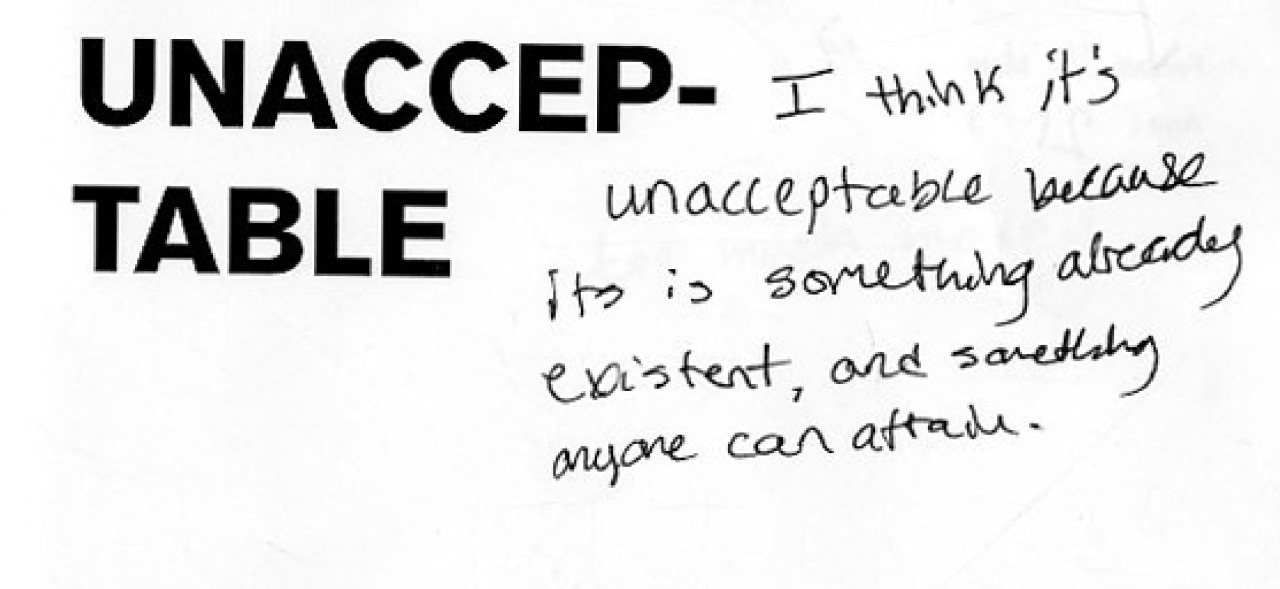 UNACCEP-
TABLE
I think it's
unacceptable because
its is something already
existent, and something
anyone can attain.